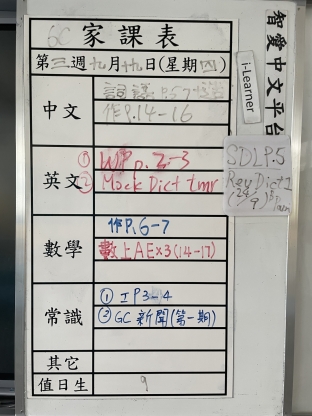 6C 家課表
第三週九月十九日(星期四)
中文
詞語 P.57
作P.14-16
英文
① WP p.2-3
② Mock Dict tmr
數學
作P.6-7
數上AE×3(14-17)
常識
① IP3-4
② GC 新聞(第一期)
其它
值日生
9
i-Learner
智愛中文平台
SDLP.5
Rev Dict 1